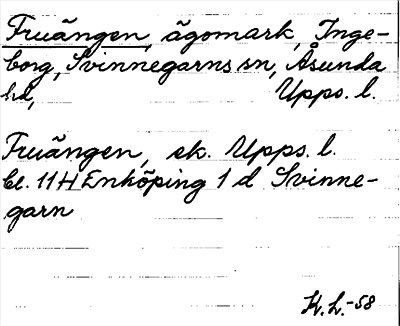 Fruängen, ägomark, Inge-
borg, Svinnegarns sn, Åsunda
hd, Upps. l.
Fruängen, ek. Upps. l.
bl. 11H Enköping 1 d Svinne-
garn
K.L.-58